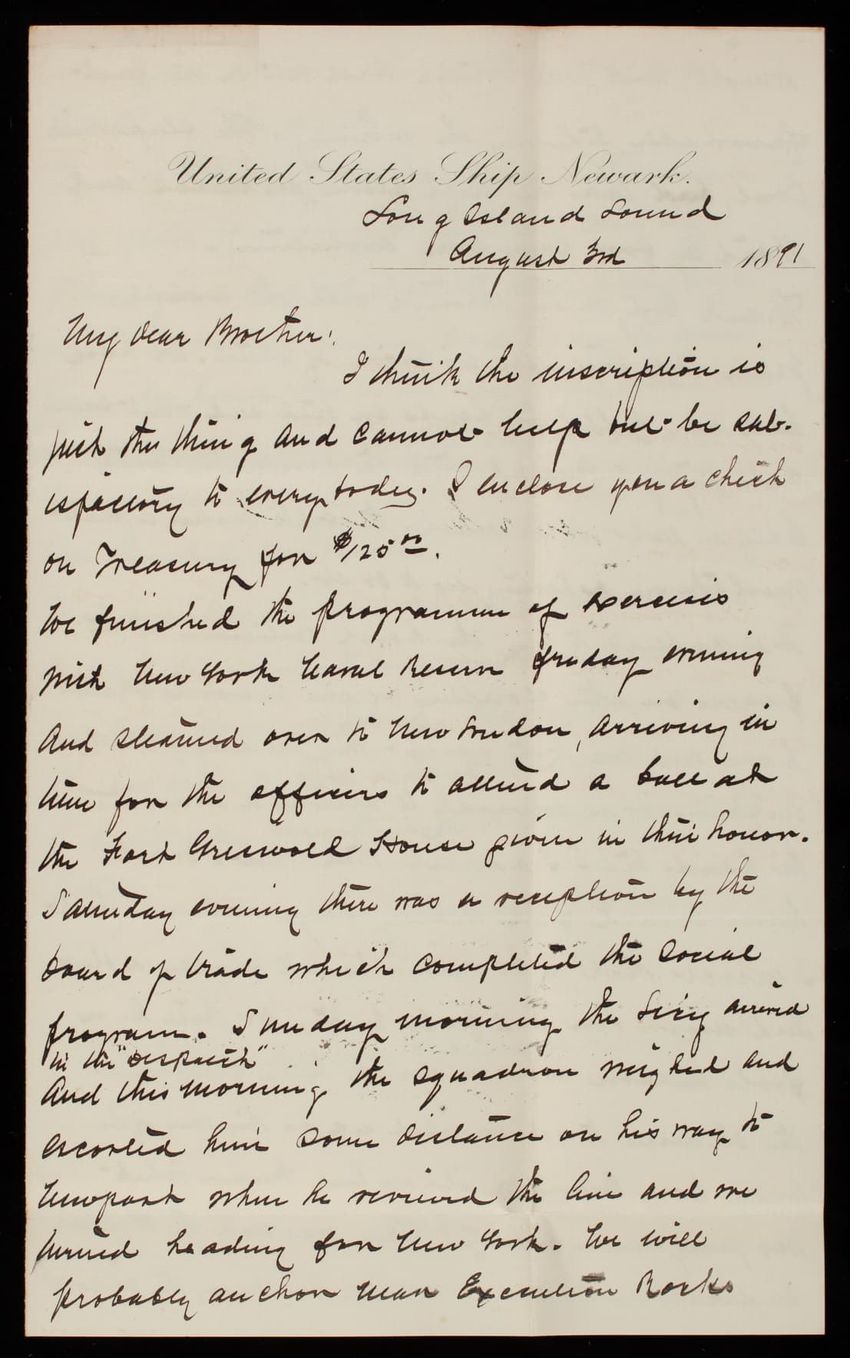 United States Ship Newark.
Long Island Sound
August 3rd 1891
My dear Brother:
I think the inscription is
just the thing and cannot help but be sat-
isfactory to everybody. I enclose you a check
on Treasury for $125 00.
We finished the programme of exercises
with New York Naval Reserve Friday evening
and steamed over to New London, arriving in
time for the officers to attend a ball at
the Fort Griswold House given in their honor.
Saturday evening there was a reception by the
board of trade which completed the social
program. Sunday morning the Secy arrived
in the "Despatch"
and this morning the squadron weighed and
escorted him some distance on his way to
Newport when he reviewed the line and we
turned heading for New York. We will
probably anchor near Execution Rocks